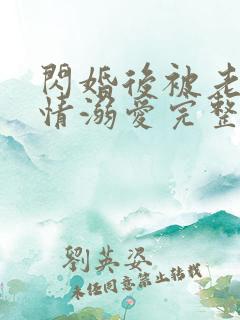 閃婚後被老
情溺愛完整
劉英姿
未經同意禁止轉載